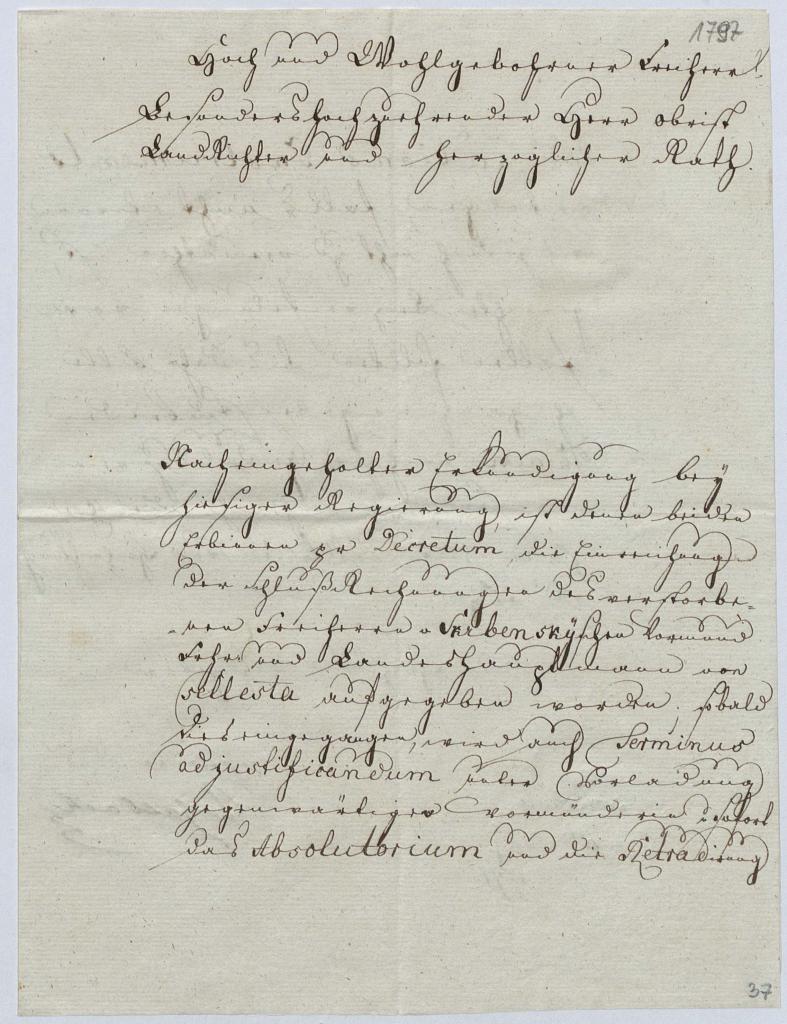 1797
Hoch und Wohlgebohrner Freiherr!
Besonders hochzuehrender Herr obrist
LandRichter und herzoglicher Rath.
Nach eingeholter Erkundigung bey
hiesiger Regierung, ist denen beiden
Erbinnen pr Decretum die Einreichung
der SchlußRechnungen des verstorbe-
nen Freiherrn v Skrbenskÿschen Vormund
Frhr: und Landeshauptmann von
sellesta aufgegeben worden, sobald
dies eingegangen, wird auch Terminus
ad justificandum unter Vorladung
gegenwärtiger Vormünderin u sofort
das Absolutorium und die Retradirung
37